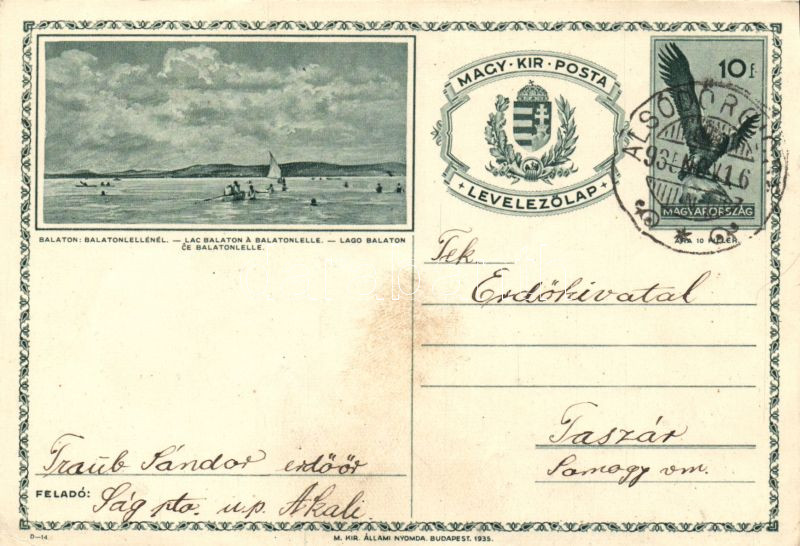 BALATON: BALATONLELLÉNÉL. — LAC BALATON À BALATONLELLE. — LAGO BALATON
ĈE BALATONLELLE.
MAGY · KIR · POSTA
LEVELEZŐLAP
10 f
MAGYARORSZÁG
ÁRA 10 FILLÉR.
Tek.
Erdőhivatal
Taszár
Somogy vm.
Traub Sándor erdőőr
FELADÓ: Ság pta. u.p. Akali
D—14
M. KIR. ÁLLAMI NYOMDA. BUDAPEST. 1935.